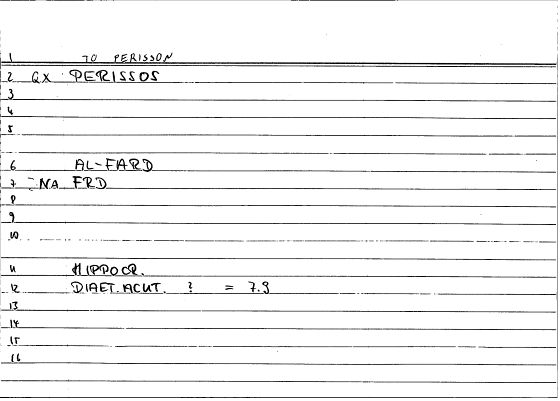 1 TO PERISSON
2 GX PERISSOS
3
4
5
6 AL-FARD
7 NA FRD
8
9
10
11 HIPPOCR.
12 DIAET. ACUT. ? = 7.9
13
14
15
16